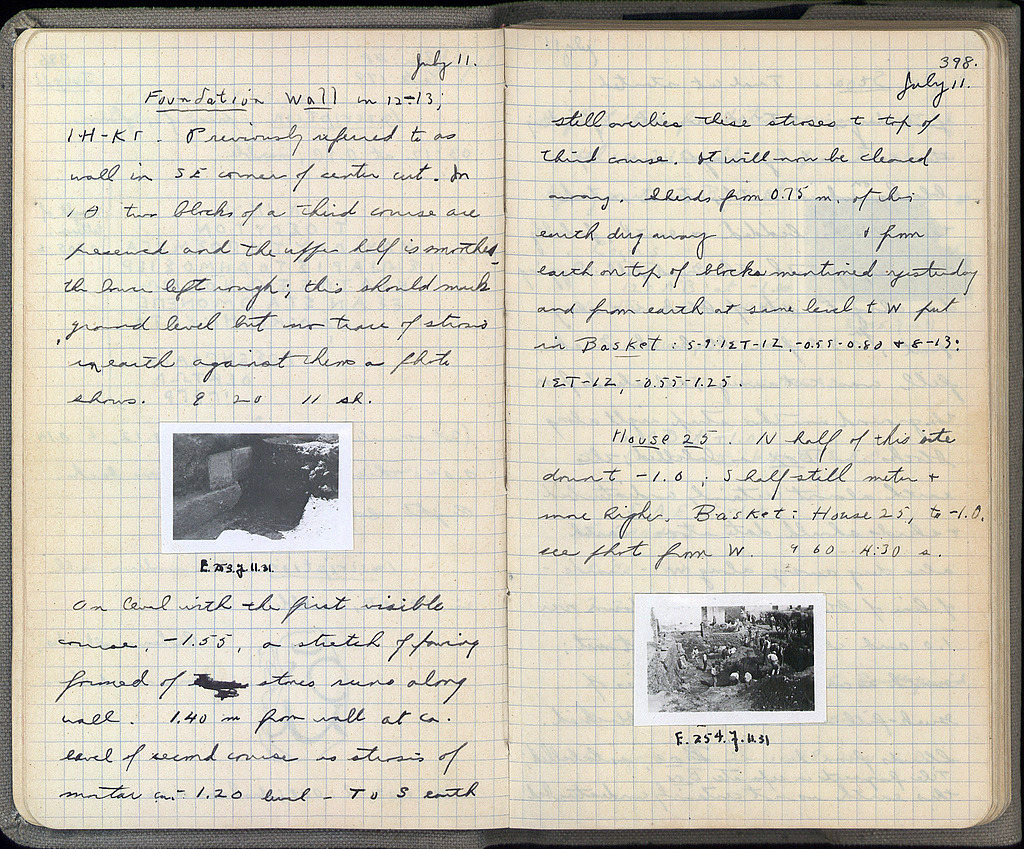 July 11.
Foundation Wall in 12-13;
1H-KΓ. Previously referred to as
wall in SE corner of center cut. In
1Θ two blocks of a third course are
preserved and the upper half is smoothed,
the lower left rough; this should mark
ground level but no trace of stroses
in earth against them as photo
shows. 9 20 11 sh.
E. 253. 7. 11. 31.
On level with the first visible
course, -1.55, a stretch of paving
formed of stones runs along
wall. 1.40 m from wall at ca.
level of second course is strosis of
mortar ca. -1.20 level - To S earth
398.
July 11.
still overlies these stroses to top of
third course. It will now be cleared
away. Sherds from 0.75 m. of this
earth dug away & from
earth on top of blocks mentioned yesterday
and from earth at same level to W put
in Basket: 5-9:1ΣT-1Z, -0.55-0.80 + 8-13:
1ΣT-1Z, -0.55-1.25.
House 25. N half of this site
down to -1.0; S half still meter +
more higher. Basket: House 25, to -1.0.
see phot from W. 9 60 4:30 s.
E. 254. 7. 11. 31